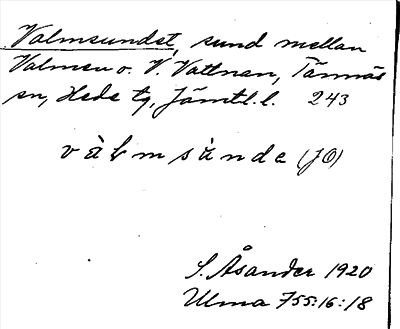 Valmsundet, sund mellan
Valmen o. V. Vattnan, Tännäs
sn, Hede tg, Jämtl. l. 243
vàlmsùndе (JO)
S. Åsander 1920
Ulma 755:16:18